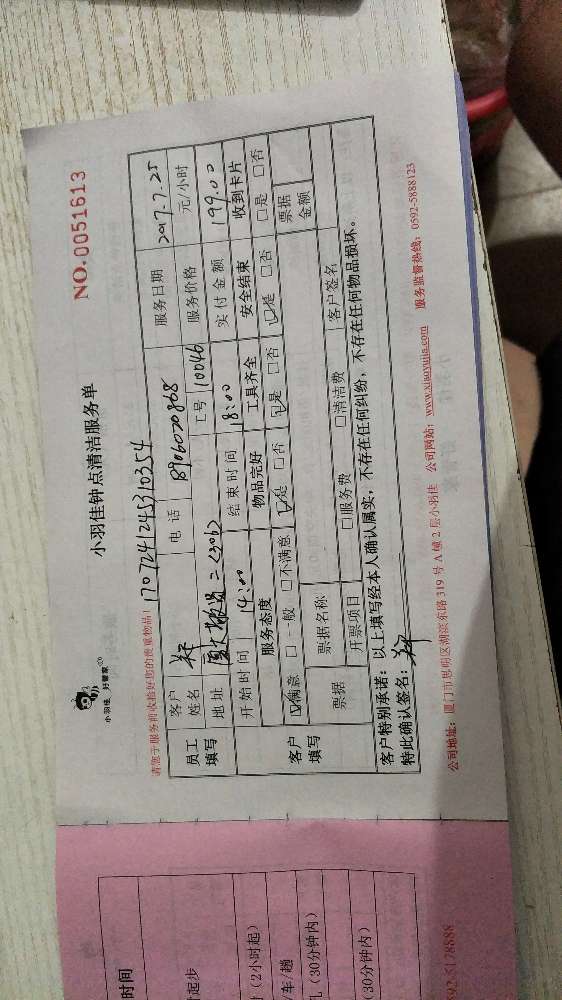 小羽佳 好管家
小羽佳钟点清洁服务单
NO.0051613
请您于服务前收检好您的贵重物品!
1707241245310354
员工填写 客户姓名 电话 8906070868 服务日期 2017.7.25
地址 工号 10046 服务价格 元/小时
开始时间 14:00 结束时间 8:00 实付金额 199.00
客户填写 服务态度 物品完好 工具齐全 安全结束 收到卡片
☑满意 □一般 □不满意 ☑是 □否 ☑是 □否 ☑是 □否 □是 □否
票据 票据名称 票据金额
开票项目 □服务费 □清洁费 客户签名
客户特别承诺:以上填写经本人确认属实,不存在任何纠纷,不存在任何物品损坏。
特此确认签名:
公司地址:厦门市思明区湖滨东路319号A幢2层小羽佳 公司网站:www.xiaoyujia.com 服务监督热线:0592-5888123
时间
起步
(2小时起)
车/趟
(30分钟内)
(30分钟内)